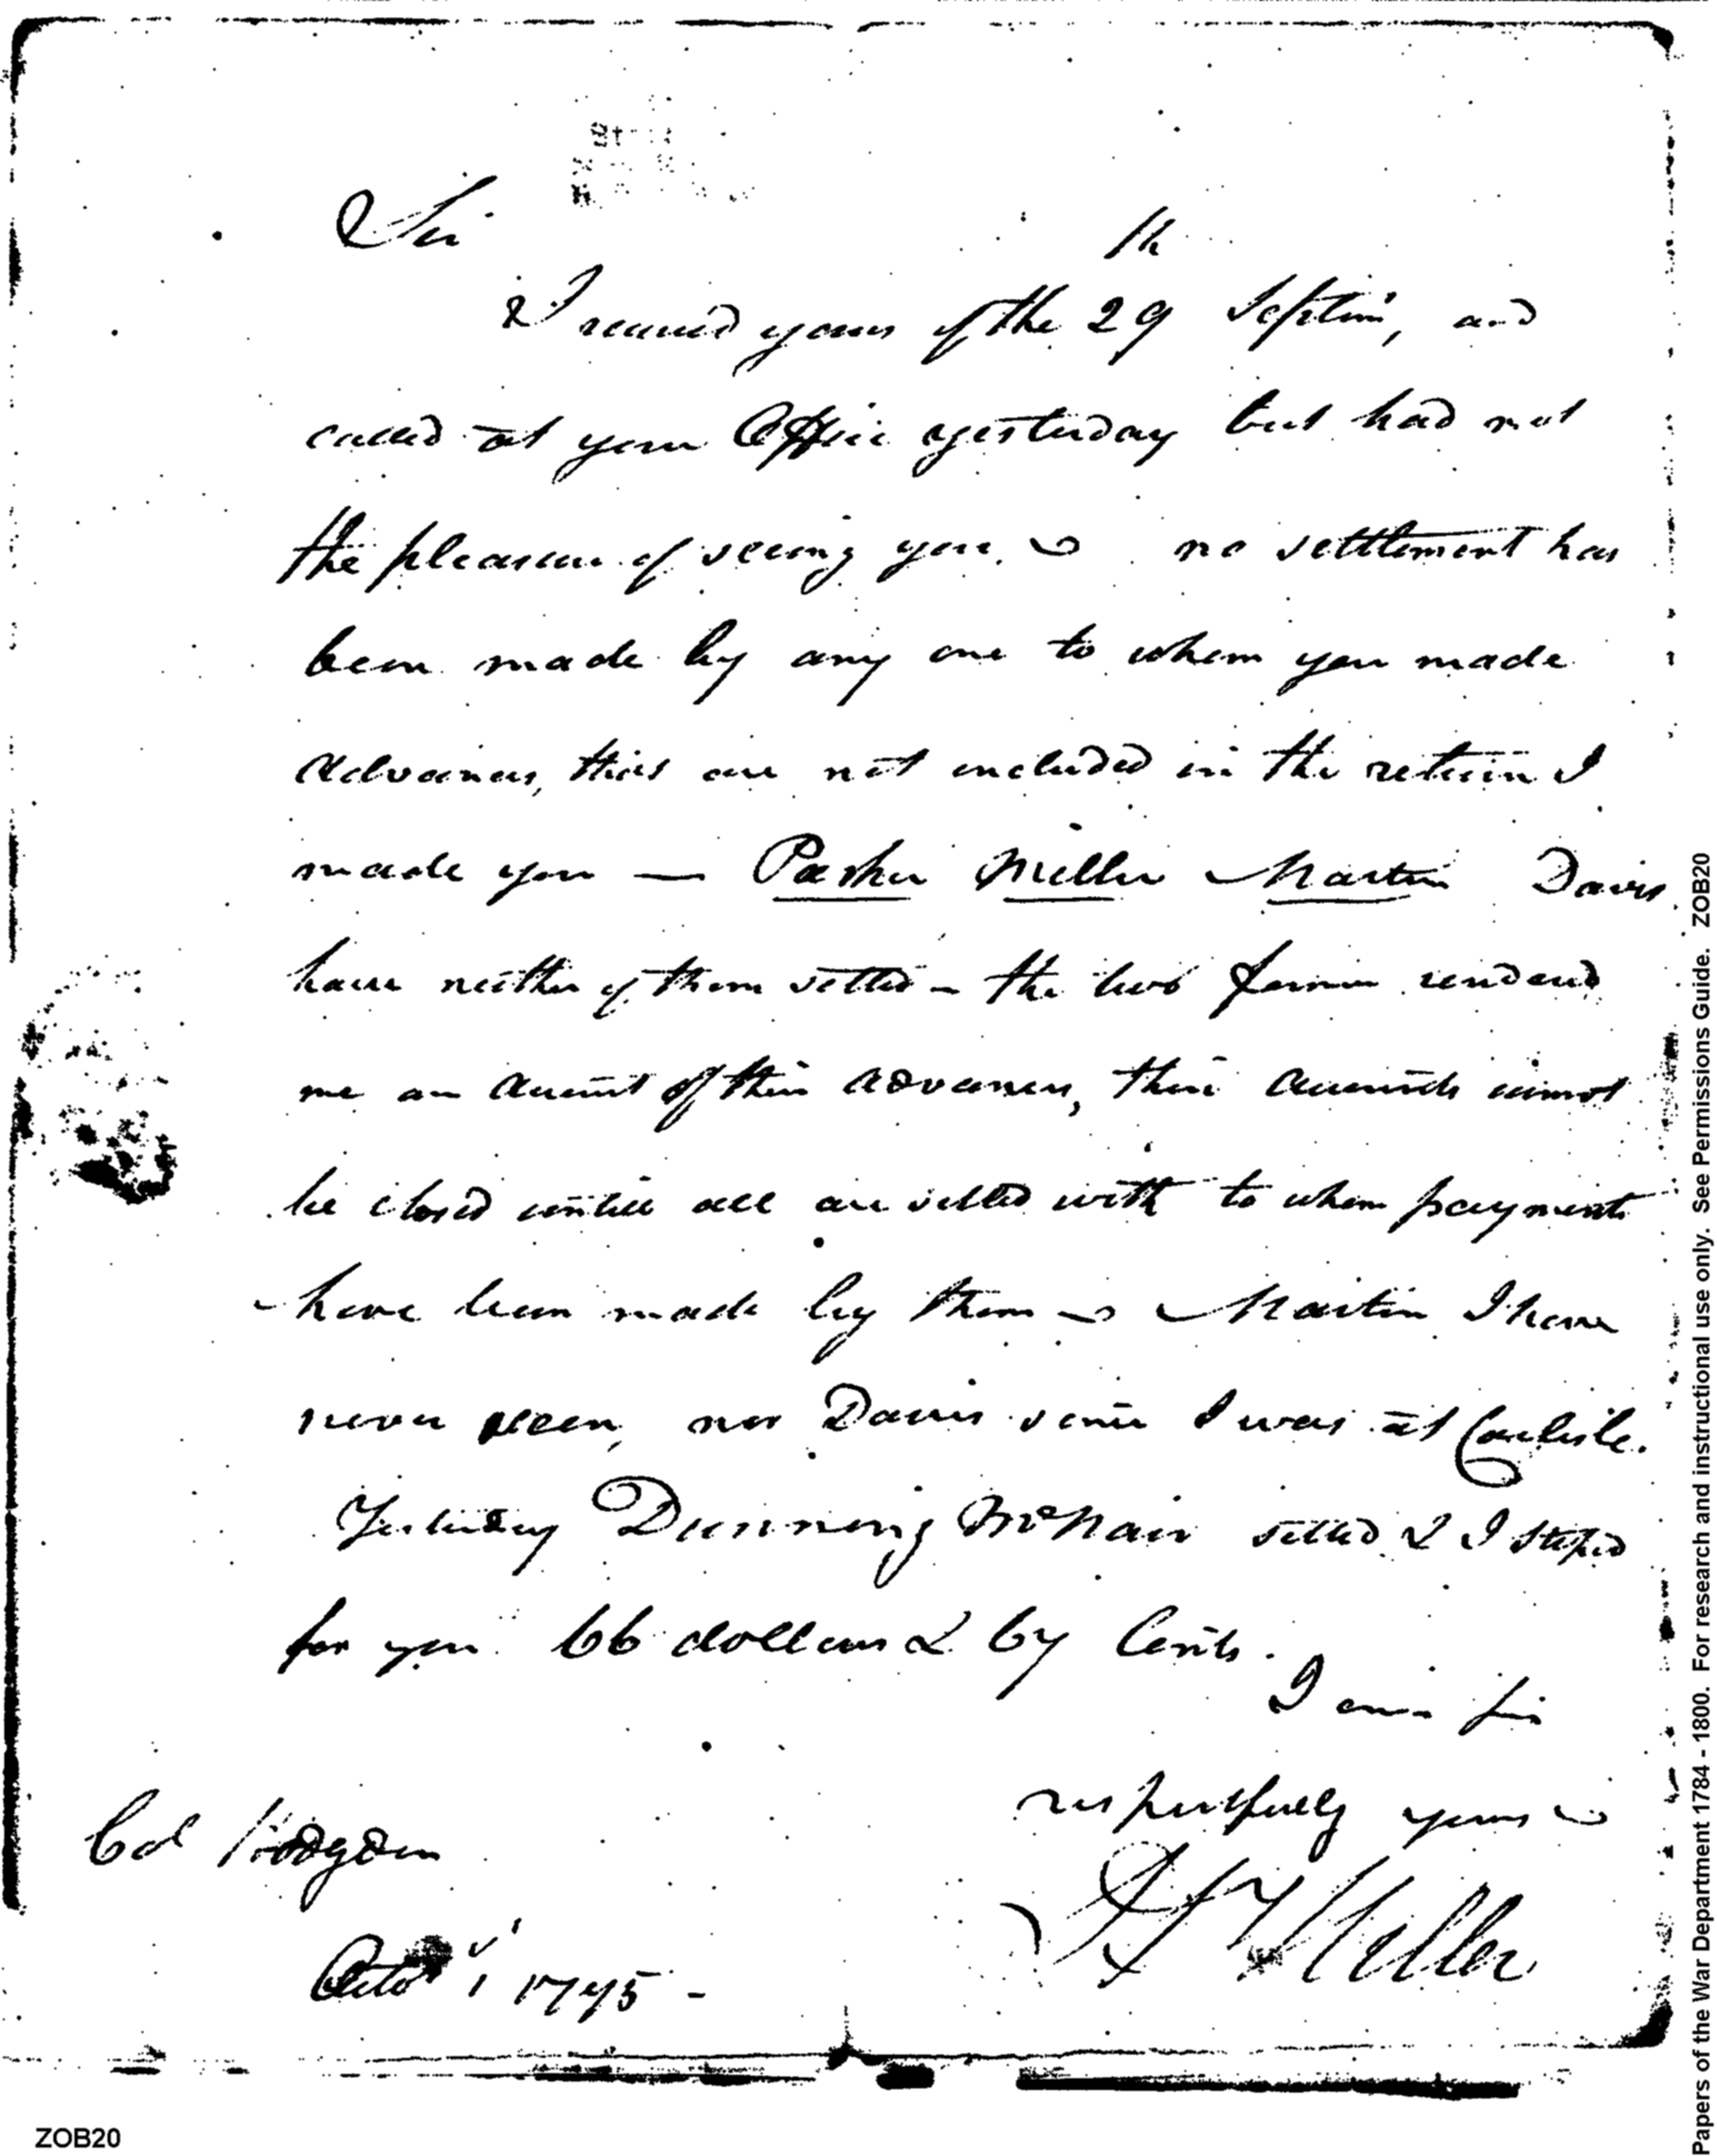 Sir
I received yours of the 29th Septem, and
called at your Office yesterday but had not
the pleasure of seeing you. no settlement has
been made by any one to whom you made
Advances, that are not included in the return I
made you — Parker Miller Martin Davis
have neither of them settled – the two former rendered
me an Account of their advances, their Accounts cannot
be closed untill all are settled with to whom payments
have been made by them Martin I have
never seen, nor Davis since I was at Carlisle.
Yesterday Dunning McNair settled & I stoped
for you 66 dollars & 67 Cents.
I am Sir
respectfully yours
Col Hodgdon
Miller
Octor 1 1795 –
ZOB20
Papers of the War Department 1784 - 1800. For research and instructional use only. See Permissions Guide. ZOB20